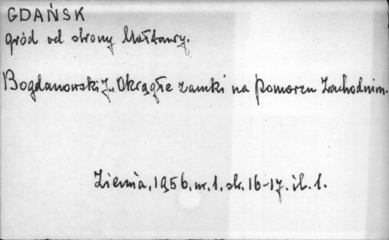 GDAŃSK
gród od strony Mołtawy.
Bogdanowski J. Okrągłe zamki na Pomorzu Zachodnim.
Ziemia, 1956. nr. 1. str. 16-17. il. 1.